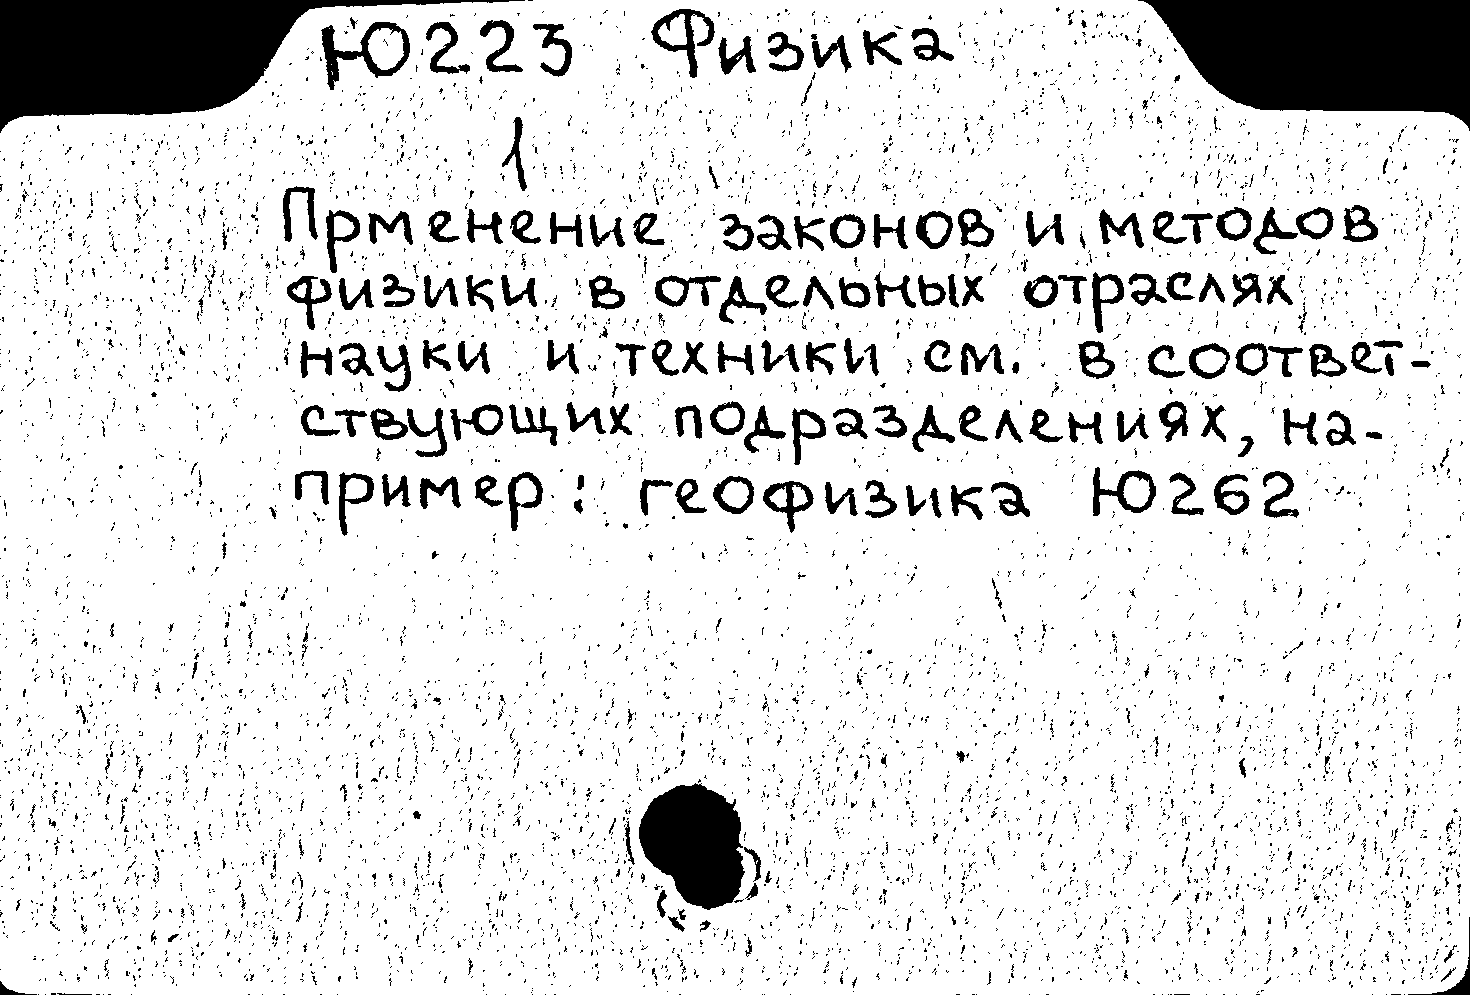 Ю223 Физика
1
Прменение законов и методов
физики в отдельных отраслях
науки и техники см. в соответ-
ствующих подразделениях, на-
пример: геофизика Ю262